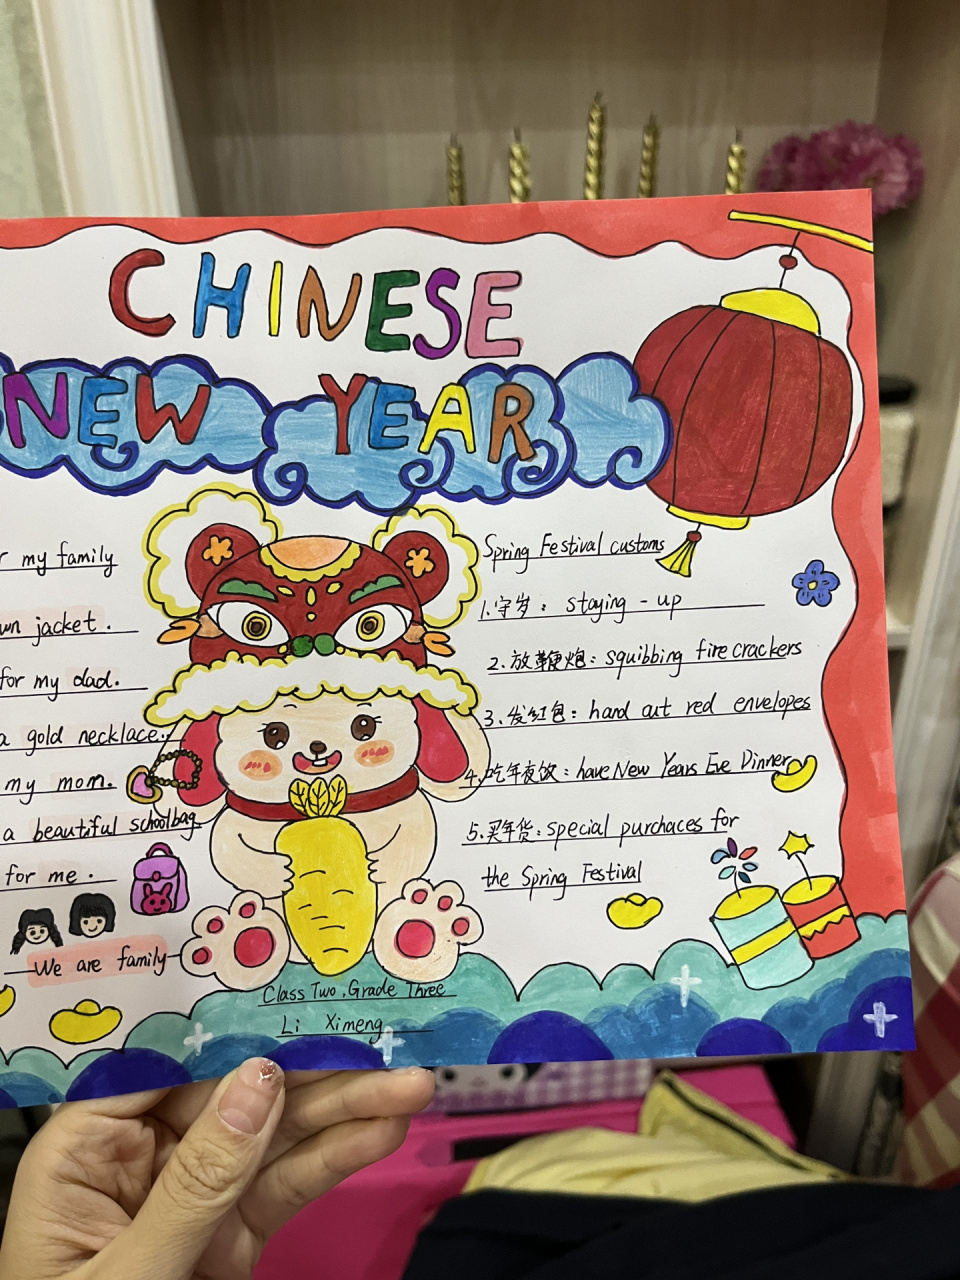 CHINESE
NEW YEAR
my family
jacket.
for my dad.
a gold necklace.
my mom.
a beautiful schoolbag
for me.
We are family
Spring Festival customs
1.守岁: staying-up
2.放鞭炮: squibbing firecrackers
3.发红包: hand out red envelopes
4.吃年夜饭: have New Years Eve Dinner
5.买年货: special purchaces for
the Spring Festival
Class Two, Grade Three
Li Ximeng